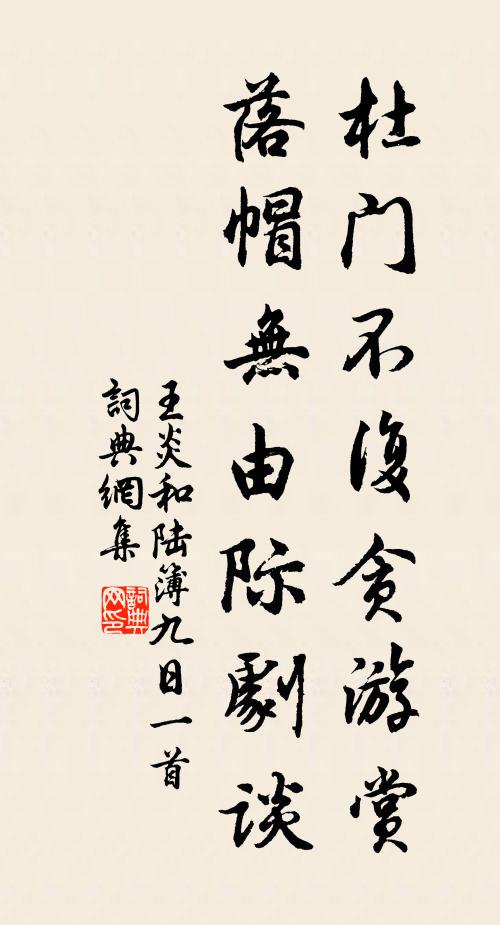 杜门不復贪游赏
落帽無由际劇谈
王炎和陆簿九日一首
詞典網集
詞典网印